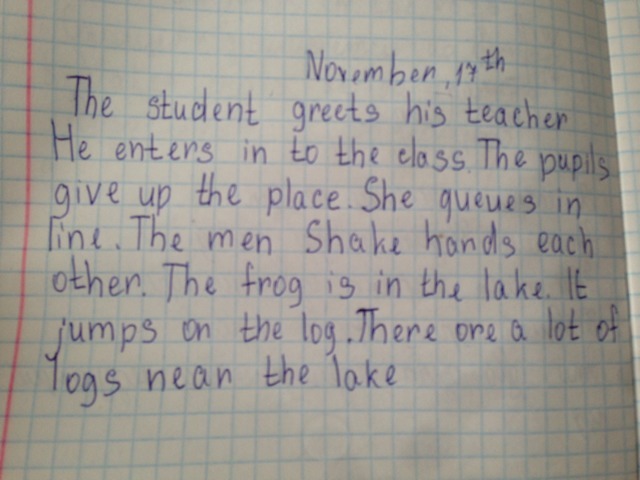 November, 17th
The student greets his teacher
He enters in to the class. The pupils
give up the place. She queues in
line. The men Shake hands each
other. The frog is in the lake. It
jumps on the log. There are a lot of
logs near the lake